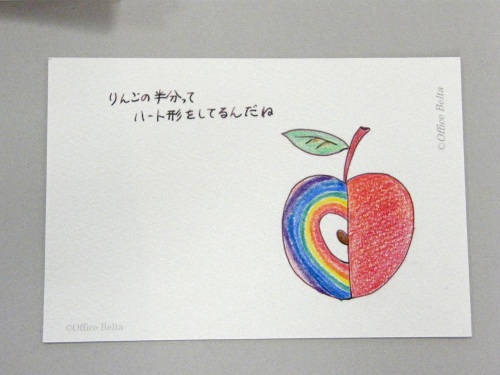 りんごの半分って
ハート形をしてるんだね
©Office Belta
©Office Belta